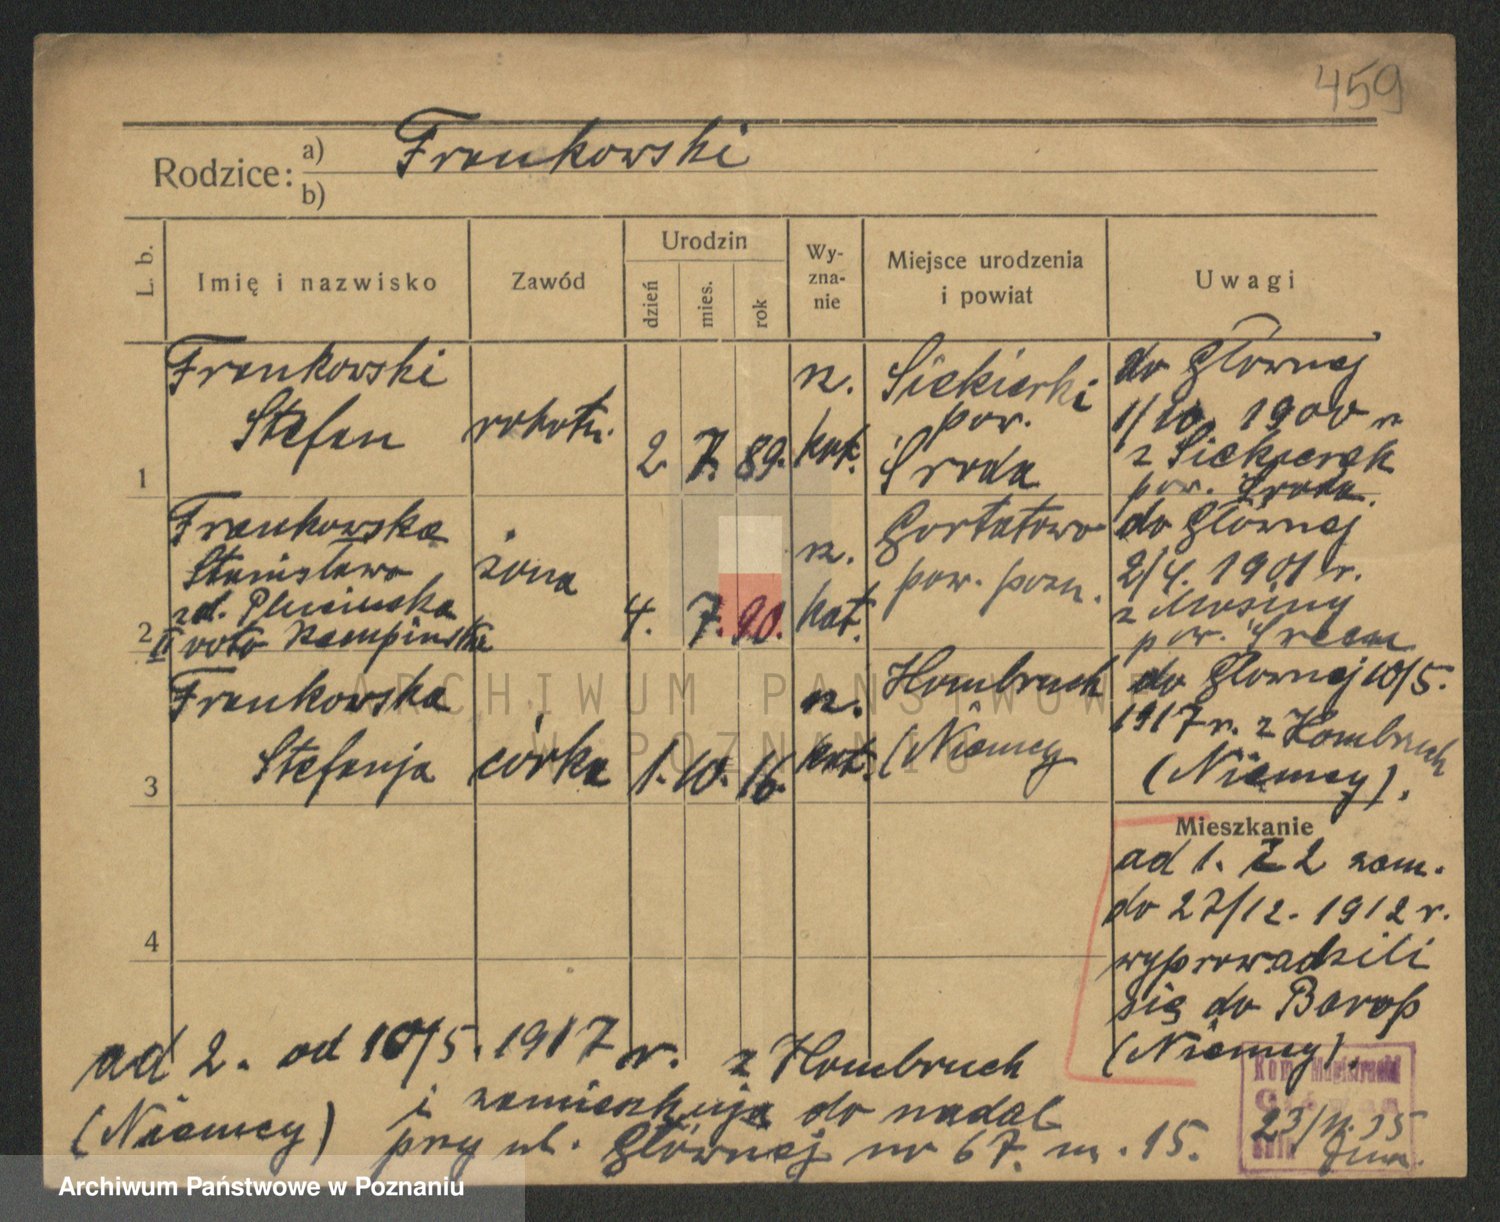 459
Rodzice: a) Frankowski
b)
L. b.
Imię i nazwisko
Zawód
Urodzin
dzień
mies.
rok
Wy-
zna-
nie
Miejsce urodzenia
i powiat
Uwagi
1
Frankowski
Stefan
robotn.
2 7. 89.
rz.
kat.
Siekierki
pow.
Środa
do Głównej
1/10. 1900 r.
z Siekierek
pow. Środa
2
Frankowska
Stanisława
zd. Plucińska
II voto Kempinska
żona
4. 7. 90.
rz.
kat.
Gortatowo
pow. pozn.
do Głównej
2/4. 1901 r.
z Mosiny
pow. Śrem
3
Frankowska
Stefanja
córka
1. 10. 16.
rz.
kat.
Hombruch
(Niemcy
do Głównej 10/5.
1917 r. z Hombruch
(Niemcy).
4
Mieszkanie
ad 1. i 2 zam.
do 27/12. 1912 r.
wyprowadzili
się do Barop
(Niemcy).
ad 2. od 10/5. 1917 r. z Hombruch
(Niemcy) i zamieszkuje do nadal
przy ul. Głównej nr 67. m. 15.
Kom. Magistracki
Główna
dnia
ARCHIWUM PAŃSTWOWE
W POZNANIU
Archiwum Państwowe w Poznaniu